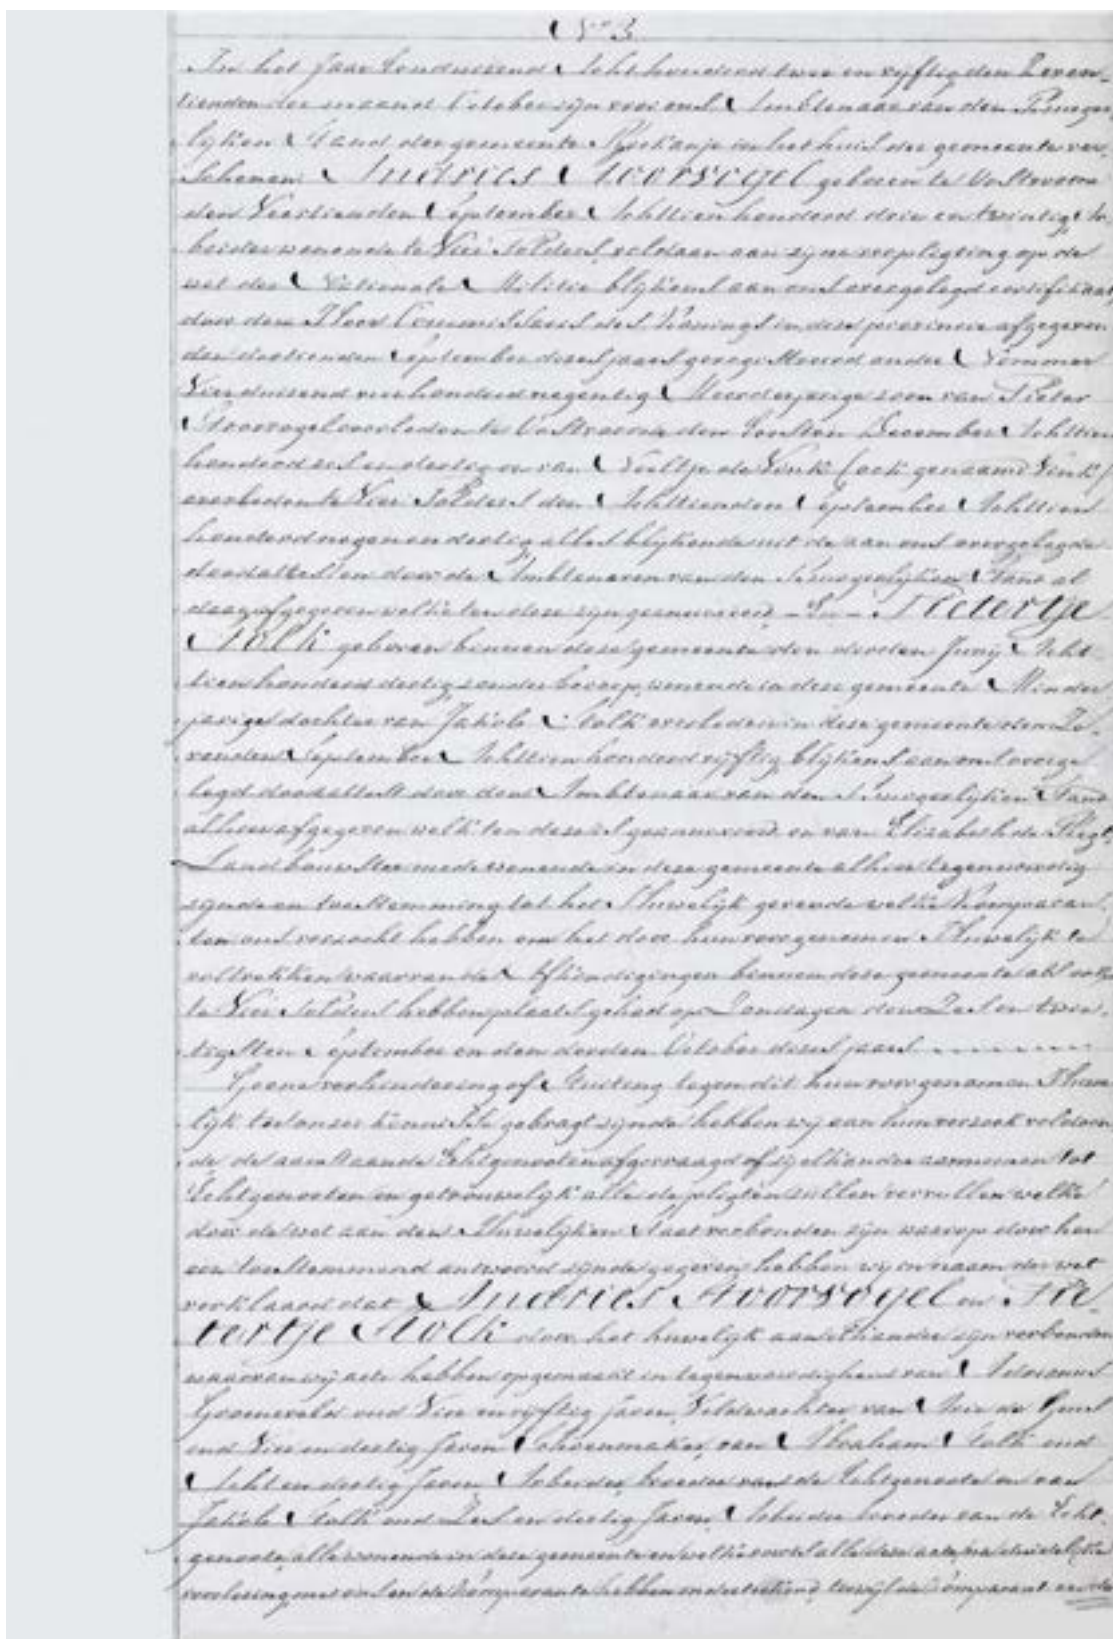 No 3.
In het Jaar Eenduizend Achthonderd twee en vyftig den Zeven-
tienden der maand October zijn voor ons Ambtenaar van den Burger
lyken Stand der gemeente Rockanje in het huis der gemeente ver-
schenen Andries Stoorvogel geboren te Oostvoorne
den Veertienden September Achttien honderd drie en twintig Ar-
beider wonende te Vier Polders, voldaan aan zijne verpligting op de
wet der Nationale Militie blijkens aan ons overgelegd certifikaat
door den Heer Commissaris des Konings in deze provincie afgegeven
den dertienden September dezes jaars geregistreerd onder Nommer
Vierduizend vierhonderd negentig Meerderjarige zoon van Pieter
Stoorvogel overleden te Oostvoorne den Eersten December Achttien
honderd zes en dertig en van Neeltje de Vink (ook genaamd Vink)
overleden te Vier Polders den Achttienden September Achttien
honderd negen en dertig alles blijkende uit de aan ons overgelegde
doodaktes en door de Ambtenaren van den Burgerlyken Stand al
daar afgegeven welke ten deze zijn geannexeerd – En – Pietertje
Stolk geboren binnen deze gemeente den derden Junij Acht-
tien honderd dertig zonder beroep, wonende in deze gemeente Minder
jarige dochter van Jakob Stolk overleden in deze gemeente den Ze-
venden September Achttien honderd vyftig blijkens aan ons overge
legd doodakte door den Ambtenaar van den Burgerlyken Stand
alhier afgegeven welk ten deze is geannexeerd en van Elizabeth de
Landbouwster mede wonende in deze gemeente alhier tegenwoordig
zijnde en toestemming tot het Huwelijk gevende welke Komparan-
ten ons verzocht hebben om het door hun voorgenomen Huwelijk te
voltrekken waarvan de Afkondigingen binnen deze gemeente als ook
te Vier Polders hebben plaats gehad op Zondagen den Zes en twin-
tigsten September en den derden October dezes jaars
Geene verhindering of Stuiting tegen dit hun voorgenomen Huwe
lijk tot onzer kennisse gebragt zijnde hebben wij aan hun verzoek voldoen
de de aanstaande Echtgenooten afgevraagd of zij elkander aannemen tot
Echtgenooten en getrouwelijk alle de pligten zullen vervullen welke
door de wet aan den Huwelijken Staat verbonden zijn waarop door hen
een toestemmend antwoord zijnde gegeven hebben wij in naam der wet
verklaard dat Andries Stoorvogel en Pie-
tertje Stolk door het huwelijk aan elkander zijn verbonden
waarvan wij acte hebben opgemaakt in tegenwoordigheid van
Groeneveld oud Vier en vyftig jaren Veldwachter van Arie de
oud Vier en dertig Jaren Schoenmaker, van Abraham Stolk oud
Acht en dertig Jaren Arbeider broeder van de Echtgenoote en van
Jakob Stolk oud Zes en dertig Jaren Arbeider broeder van de Echt-
genoote, alle wonende in deze gemeente en welke deze acte na duidelijke
voorlezing met ons en de Komparante hebben onderteekend terwijl de Komparant en de